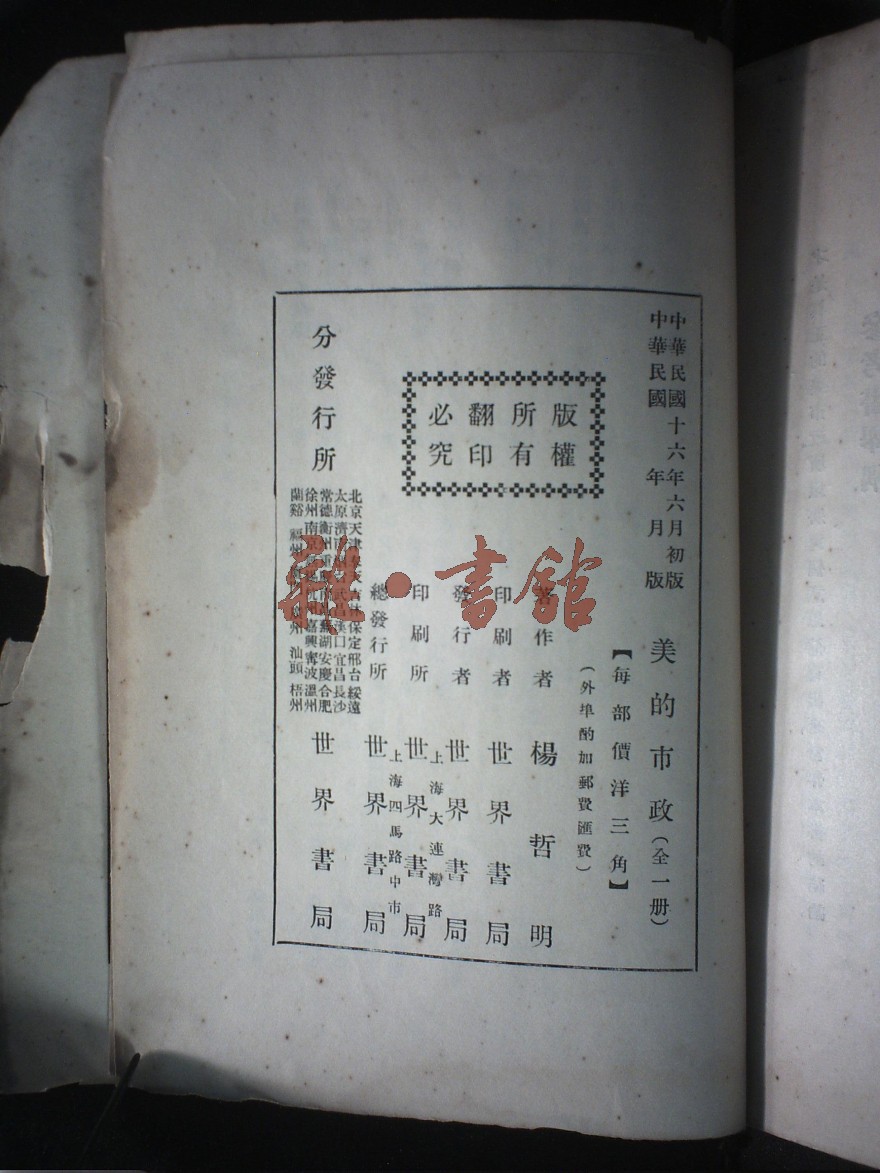 中華民國十六年六月初版
中華民國 年 月 版
美的市政(全一册)
【每部價洋三角】
(外埠酌加郵費匯費)
版權
所有
翻印
必究
著作者 楊哲明
印刷者 世界書局
發行者 世界書局
印刷所 上海大連灣路 世界書局
總發行所 上海四馬路中市 世界書局
分發行所
北京天津 吉林保定邢台綏遠
太原濟南 武昌漢口宜昌長沙
常德衡州重慶 蕪湖安慶合肥
徐州南京 杭州嘉興寗波溫州
蘭谿 福州 汕頭 梧州
世界書局
雜·書館